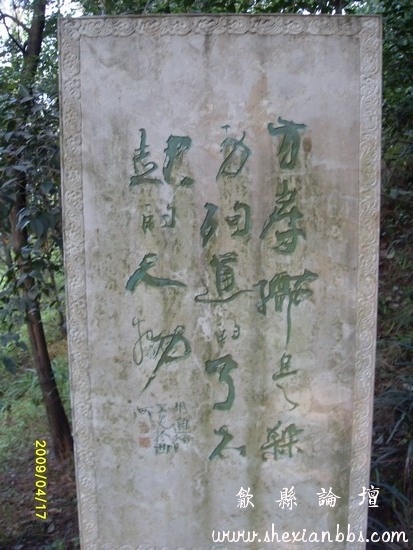 方孝孺是殺
身殉道的了不
起的人物
2009/04/17
歙縣論壇
www.shexianbbs.com